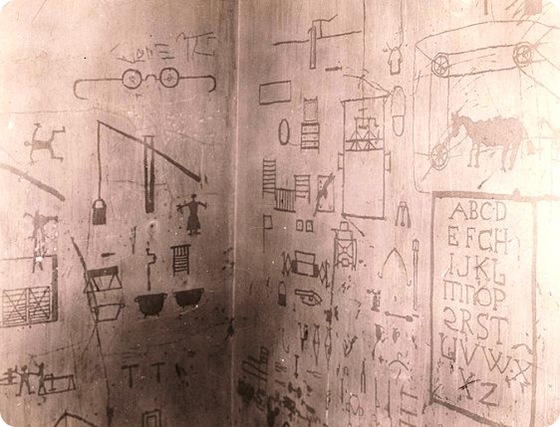 T T
ABCD
EFGH
IJKL
MNOP
QRST
UVWX
YZ